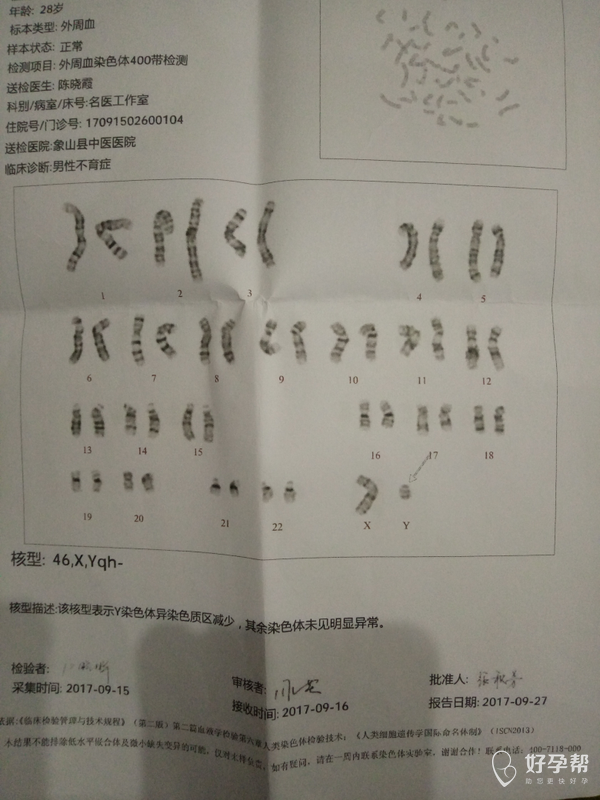 年龄: 28岁
标本类型: 外周血
样本状态: 正常
检测项目: 外周血染色体400带检测
送检医生: 陈晓霞
科别/病室/床号:名医工作室
住院号/门诊号: 17091502600104
送检医院:象山县中医医院
临床诊断:男性不育症
1 2 3 4 5
6 7 8 9 10 11 12
13 14 15 16 17 18
19 20 21 22 X Y
核型: 46,X,Yqh-
核型描述:该核型表示Y染色体异染色质区减少,其余染色体未见明显异常。
检验者:
审核者:
批准人:
采集时间: 2017-09-15
接收时间: 2017-09-16
报告日期: 2017-09-27
依据:《临床检验管理与技术规程》(第二版)第二篇血液学检验第六章人类染色体检验技术;《人类细胞遗传学国际命名体制》(ISCN2013)
本结果不能排除低水平嵌合体及微小缺失变异的可能,仅对本样负责。如有疑问,请在一周内联系染色体实验室,谢谢合作!联系电话: 400-7118-000
好孕帮
助您更快好孕